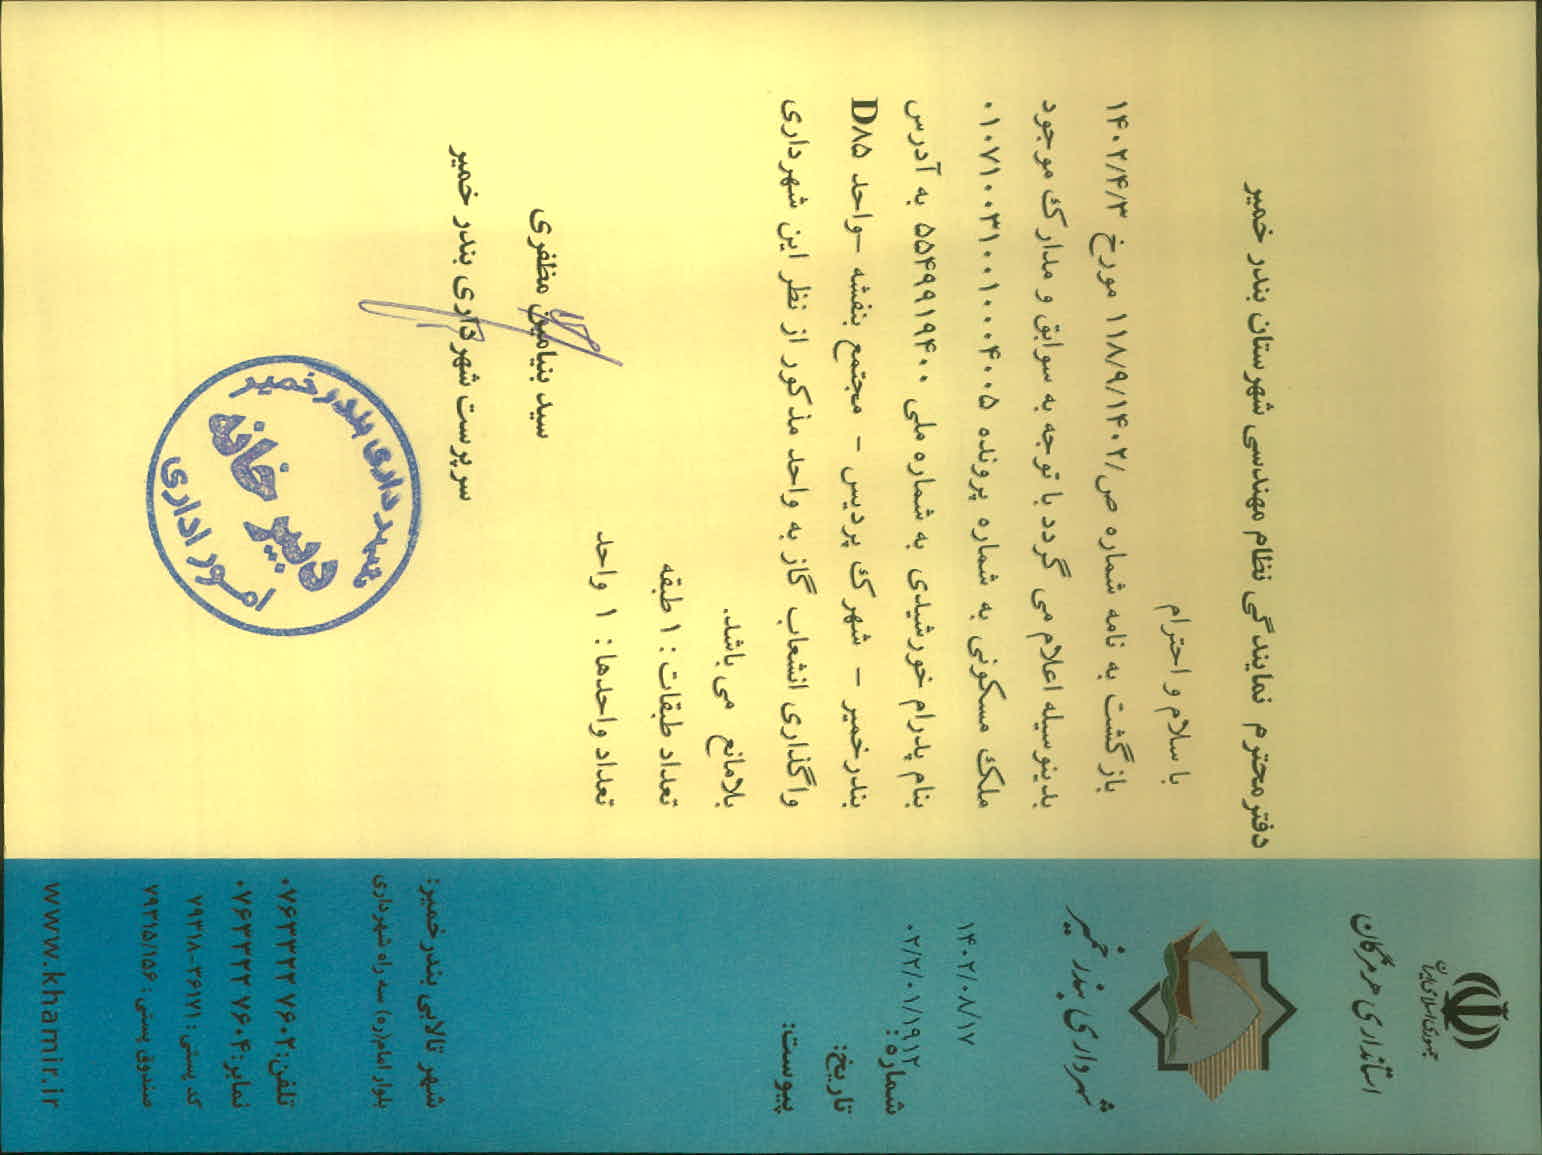 جمهوری اسلامی ایران
استانداری هرمزگان
شهرداری بندر خمیر
۱۴۰۲/۰۸/۱۷
۰۲/۲/۰۱/۱۹۱۲
شماره:
تاریخ:
پیوست:
دفتر محترم نمایندگی نظام مهندسی شهرستان بندر خمیر
با سلام و احترام
بازگشت به نامه شماره ص/۱۱۸/۹/۱۴۰۲ مورخ ۱۴۰۲/۴/۳
بدینوسیله اعلام می گردد با توجه به سوابق و مدارک موجود
ملک مسکونی به شماره پرونده ۰۱۰۷۱۰۰۳۱۰۰۱۰۰۰۴۰۰۵
بنام پدرام خورشیدی به شماره ملی ۵۵۴۹۹۱۹۴۰۰ به آدرس
بندرخمیر – شهرک پردیس – مجتمع بنفشه –واحد D۸۵
واگذاری انشعاب گاز به واحد مذکور از نظر این شهرداری
بلامانع می باشد.
تعداد طبقات: ۱ طبقه
تعداد واحدها: ۱ واحد
سید بنیامین مظفری
سرپرست شهرداری بندر خمیر
شهرداری بندر خمیر
دبیر خانه
امور اداری
شهر تالابی بندر خمیر:
بلوار امام(ره) سه راه شهرداری
تلفن:۰۷۶۳۳۲۲ ۷۶۰۲
نمابر:۰۷۶۳۳۲۲ ۷۶۰۴
کد پستی: ۳۶۱۷۱-۷۹۳۱۸
صندوق پستی: ۷۹۳۱۵/۱۵۶
www.khamir.ir